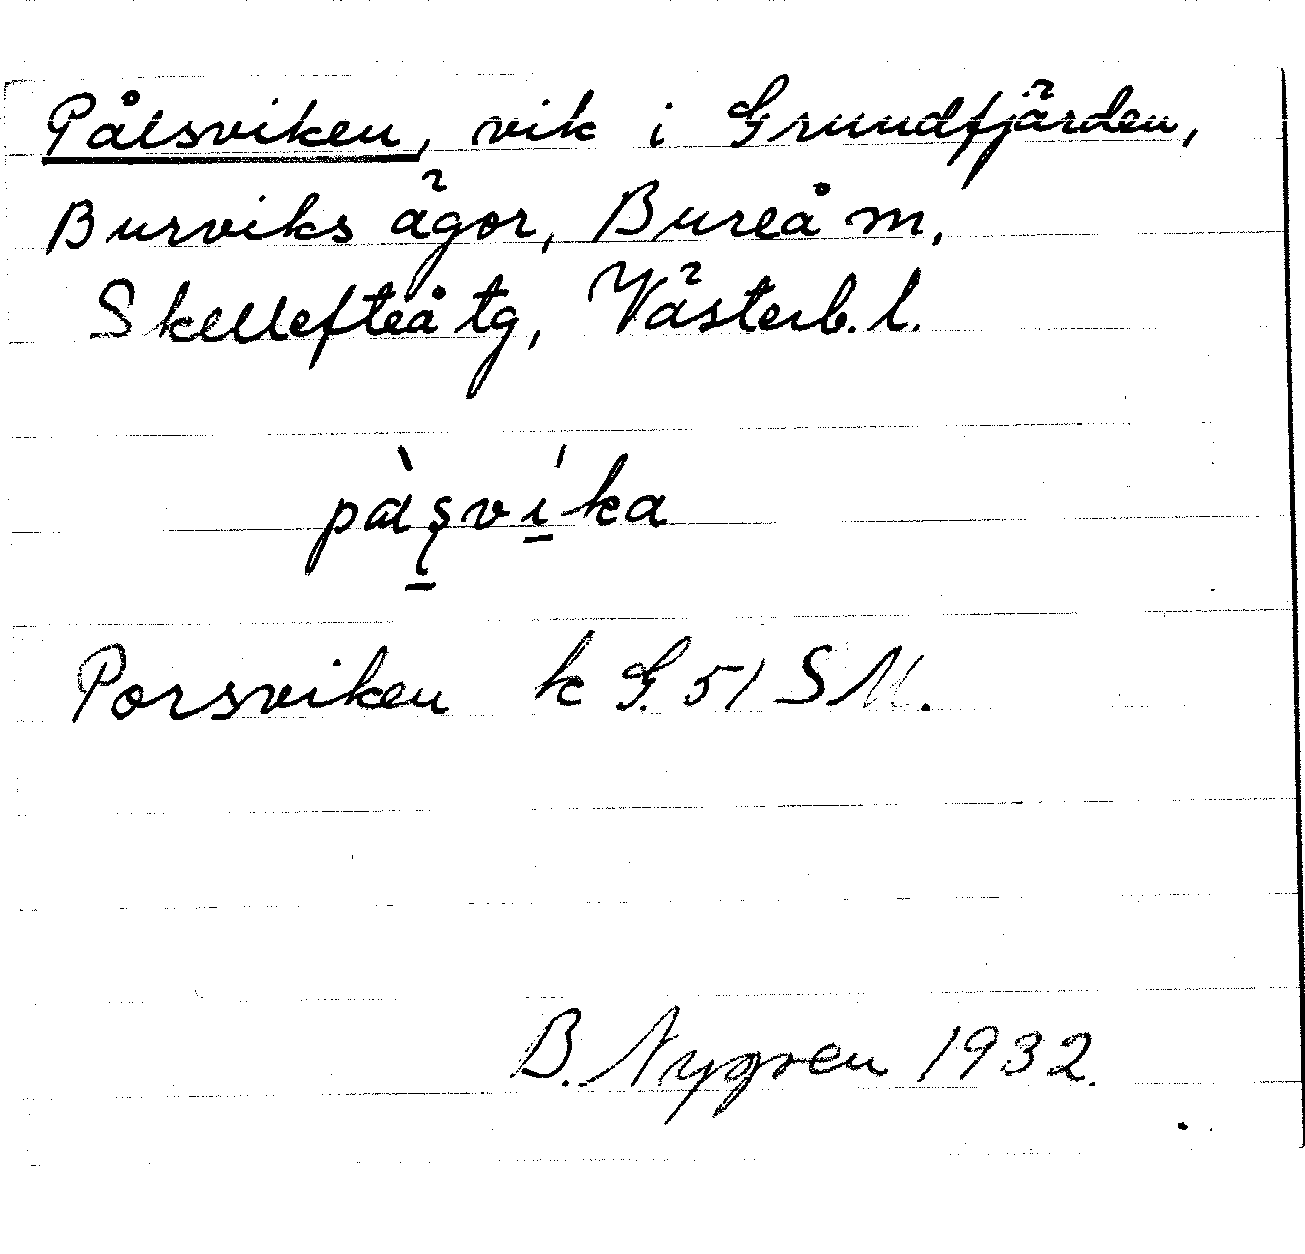 Pålsviken, vik i Grundfjärden,
Burviks ägor, Bureå m,
Skellefteå tg, Västerb. l.
pàsvíka
Porsviken k G. 51 SM.
B. Nygren 1932.